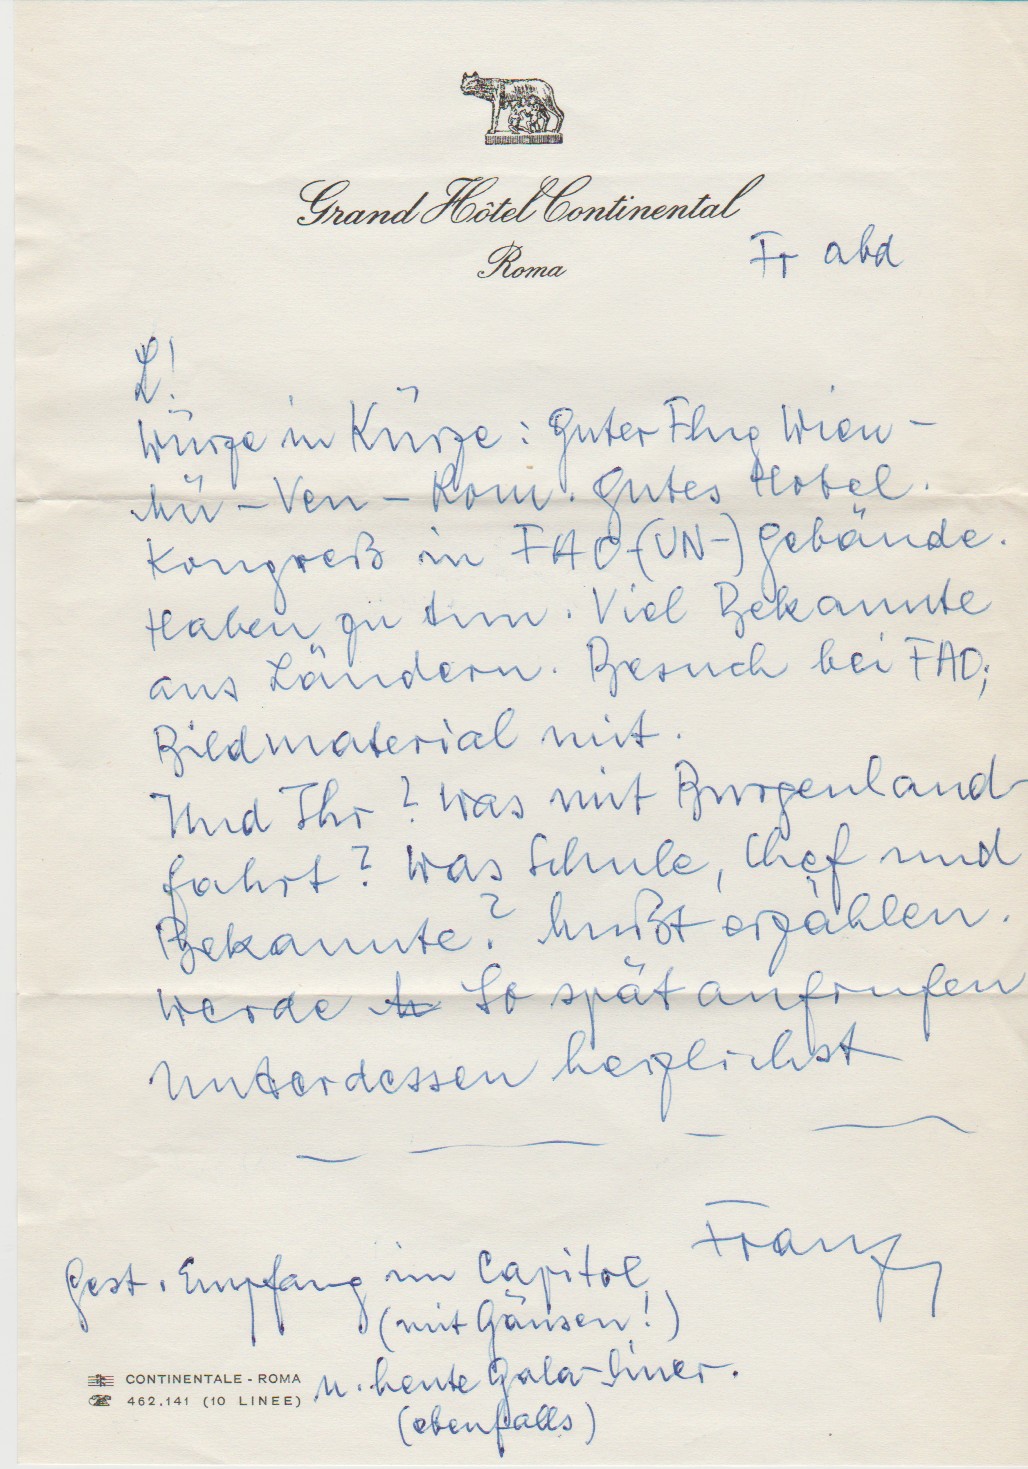 Grand Hôtel Continental
Roma
Fr abd
L!
Würze in Kürze: Guter Flug Wien –
Mü – Ven – Rom. Gutes Hotel.
Kongreß in FAO-(UN-)gebäude.
Haben zu tun. Viel Bekannte
aus Ländern. Besuch bei FAO;
Bildmaterial mit.
Und Ihr? Was mit Burgenland-
fahrt? Was Schule, Chef und
Bekannte? Mußt erzählen.
Werde So spät anfrufen
Unterdessen herzlichst
Franz
Gest. Empfang im Capitol
(mit Gänsen!)
u. heute Gala-Diner.
(ebenfalls)
CONTINENTALE - ROMA
462.141 (10 LINEE)